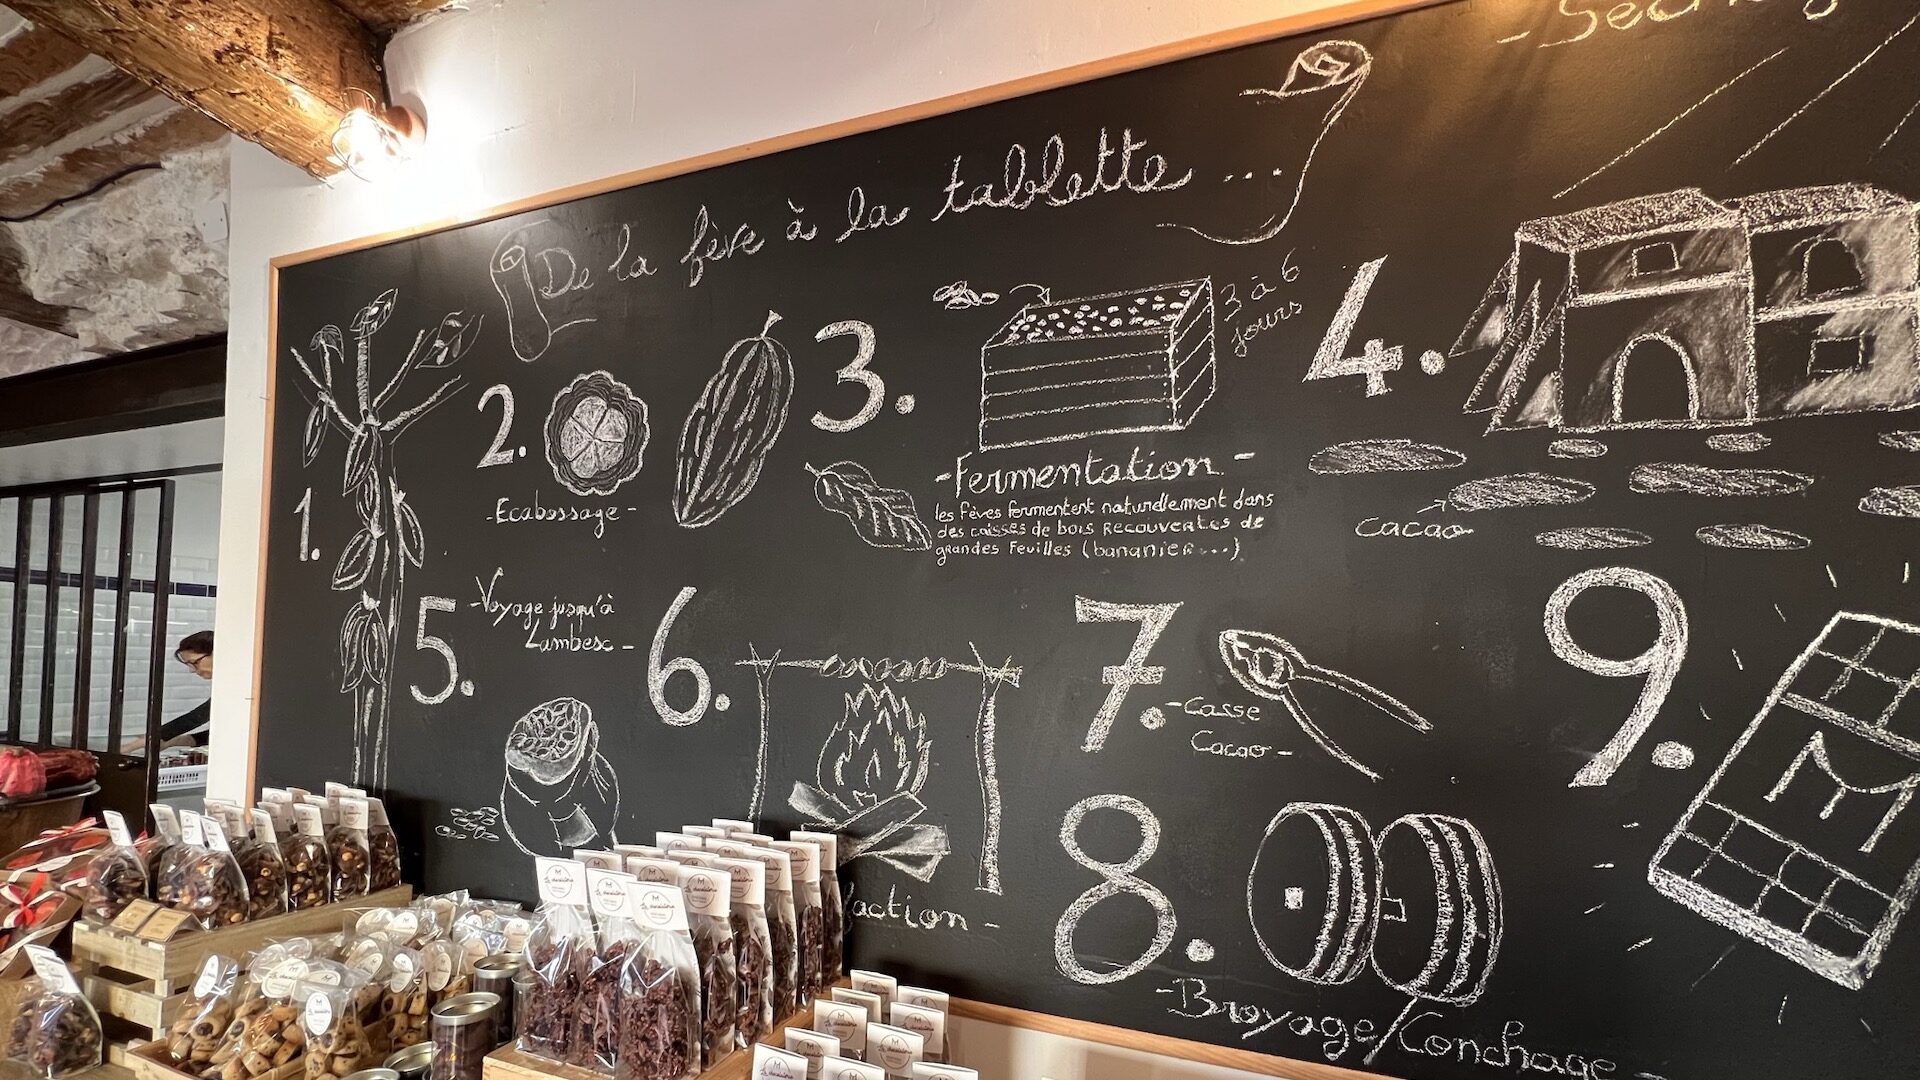 De la fève à la tablette ...
1.
2.
- Ecabossage -
3.
3 à 6
jours
- Fermentation -
les fèves fermentent naturellement dans
des caisses de bois recouvertes de
grandes feuilles (bananier...)
4.
cacao
5.
- Voyage jusqu'à
Lambesc -
6.
7.
- Casse
Cacao -
8.
- Broyage/Conchage -
9.
M